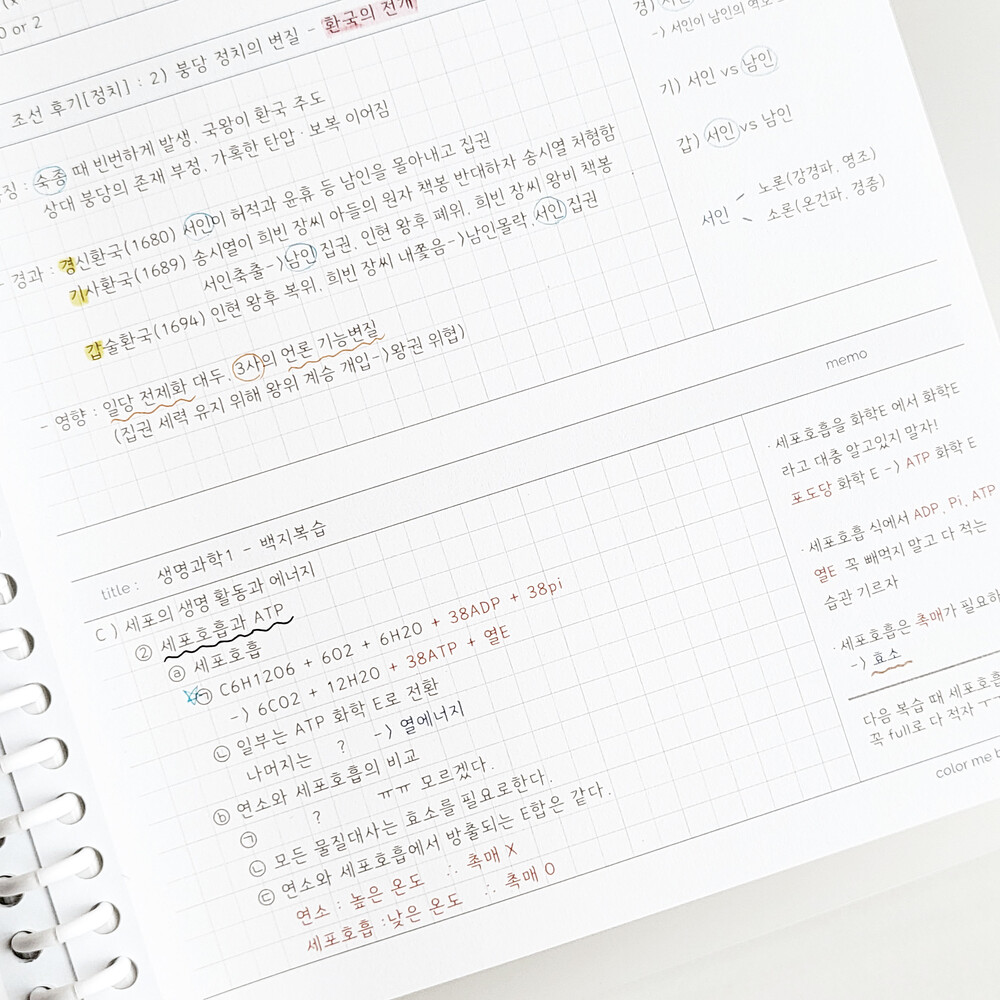 0 or 2
조선 후기[정치] : 2) 붕당 정치의 변질 - 환국의 전개
징 : 숙종 때 빈번하게 발생. 국왕이 환국 주도
상대 붕당의 존재 부정, 가혹한 탄압·보복 이어짐
- 경과 : 경신환국(1680) 서인이 허적과 윤휴 등 남인을 몰아내고 집권
기사환국(1689) 송시열이 희빈 장씨 아들의 원자 책봉 반대하자 송시열 처형함
서인축출->남인 집권, 인현 왕후 폐위, 희빈 장씨 왕비 책봉
갑술환국(1694) 인현 왕후 복위, 희빈 장씨 내쫓음->남인몰락, 서인 집권
- 영향 : 일당 전제화 대두, 3사의 언론 기능변질
(집권 세력 유지 위해 왕위 계승 개입->왕권 위협)
경)
-) 서인이 남인의
기) 서인 vs 남인
갑) 서인 vs 남인
서인
노론(강경파, 영조)
소론(온건파, 경종)
memo
title : 생명과학1 - 백지복습
C) 세포의 생명 활동과 에너지
② 세포호흡과 ATP
ⓐ 세포호흡
㉠ C6H12O6 + 6O2 + 6H2O + 38ADP + 38pi
-> 6CO2 + 12H2O + 38ATP + 열E
㉡ 일부는 ATP 화학 E로 전환
나머지는 ? -> 열에너지
ⓑ 연소와 세포호흡의 비교
㉠ ? ㅠㅠ 모르겠다.
㉡ 모든 물질대사는 효소를 필요로한다.
㉢ 연소와 세포호흡에서 방출되는 E합은 같다.
연소 : 높은 온도 ∴ 촉매 X
세포호흡 : 낮은 온도 ∴ 촉매 O
· 세포호흡을 화학E 에서 화학E
라고 대충 알고있지 말자!
포도당 화학 E -> ATP 화학 E
· 세포호흡 식에서 ADP, Pi, ATP
열E 꼭 빼먹지 말고 다 적는
습관 기르자
· 세포호흡은 촉매가 필요하
-> 효소
다음 복습 때 세포호흡
꼭 full로 다 적자 ㅜㅜ
color me b